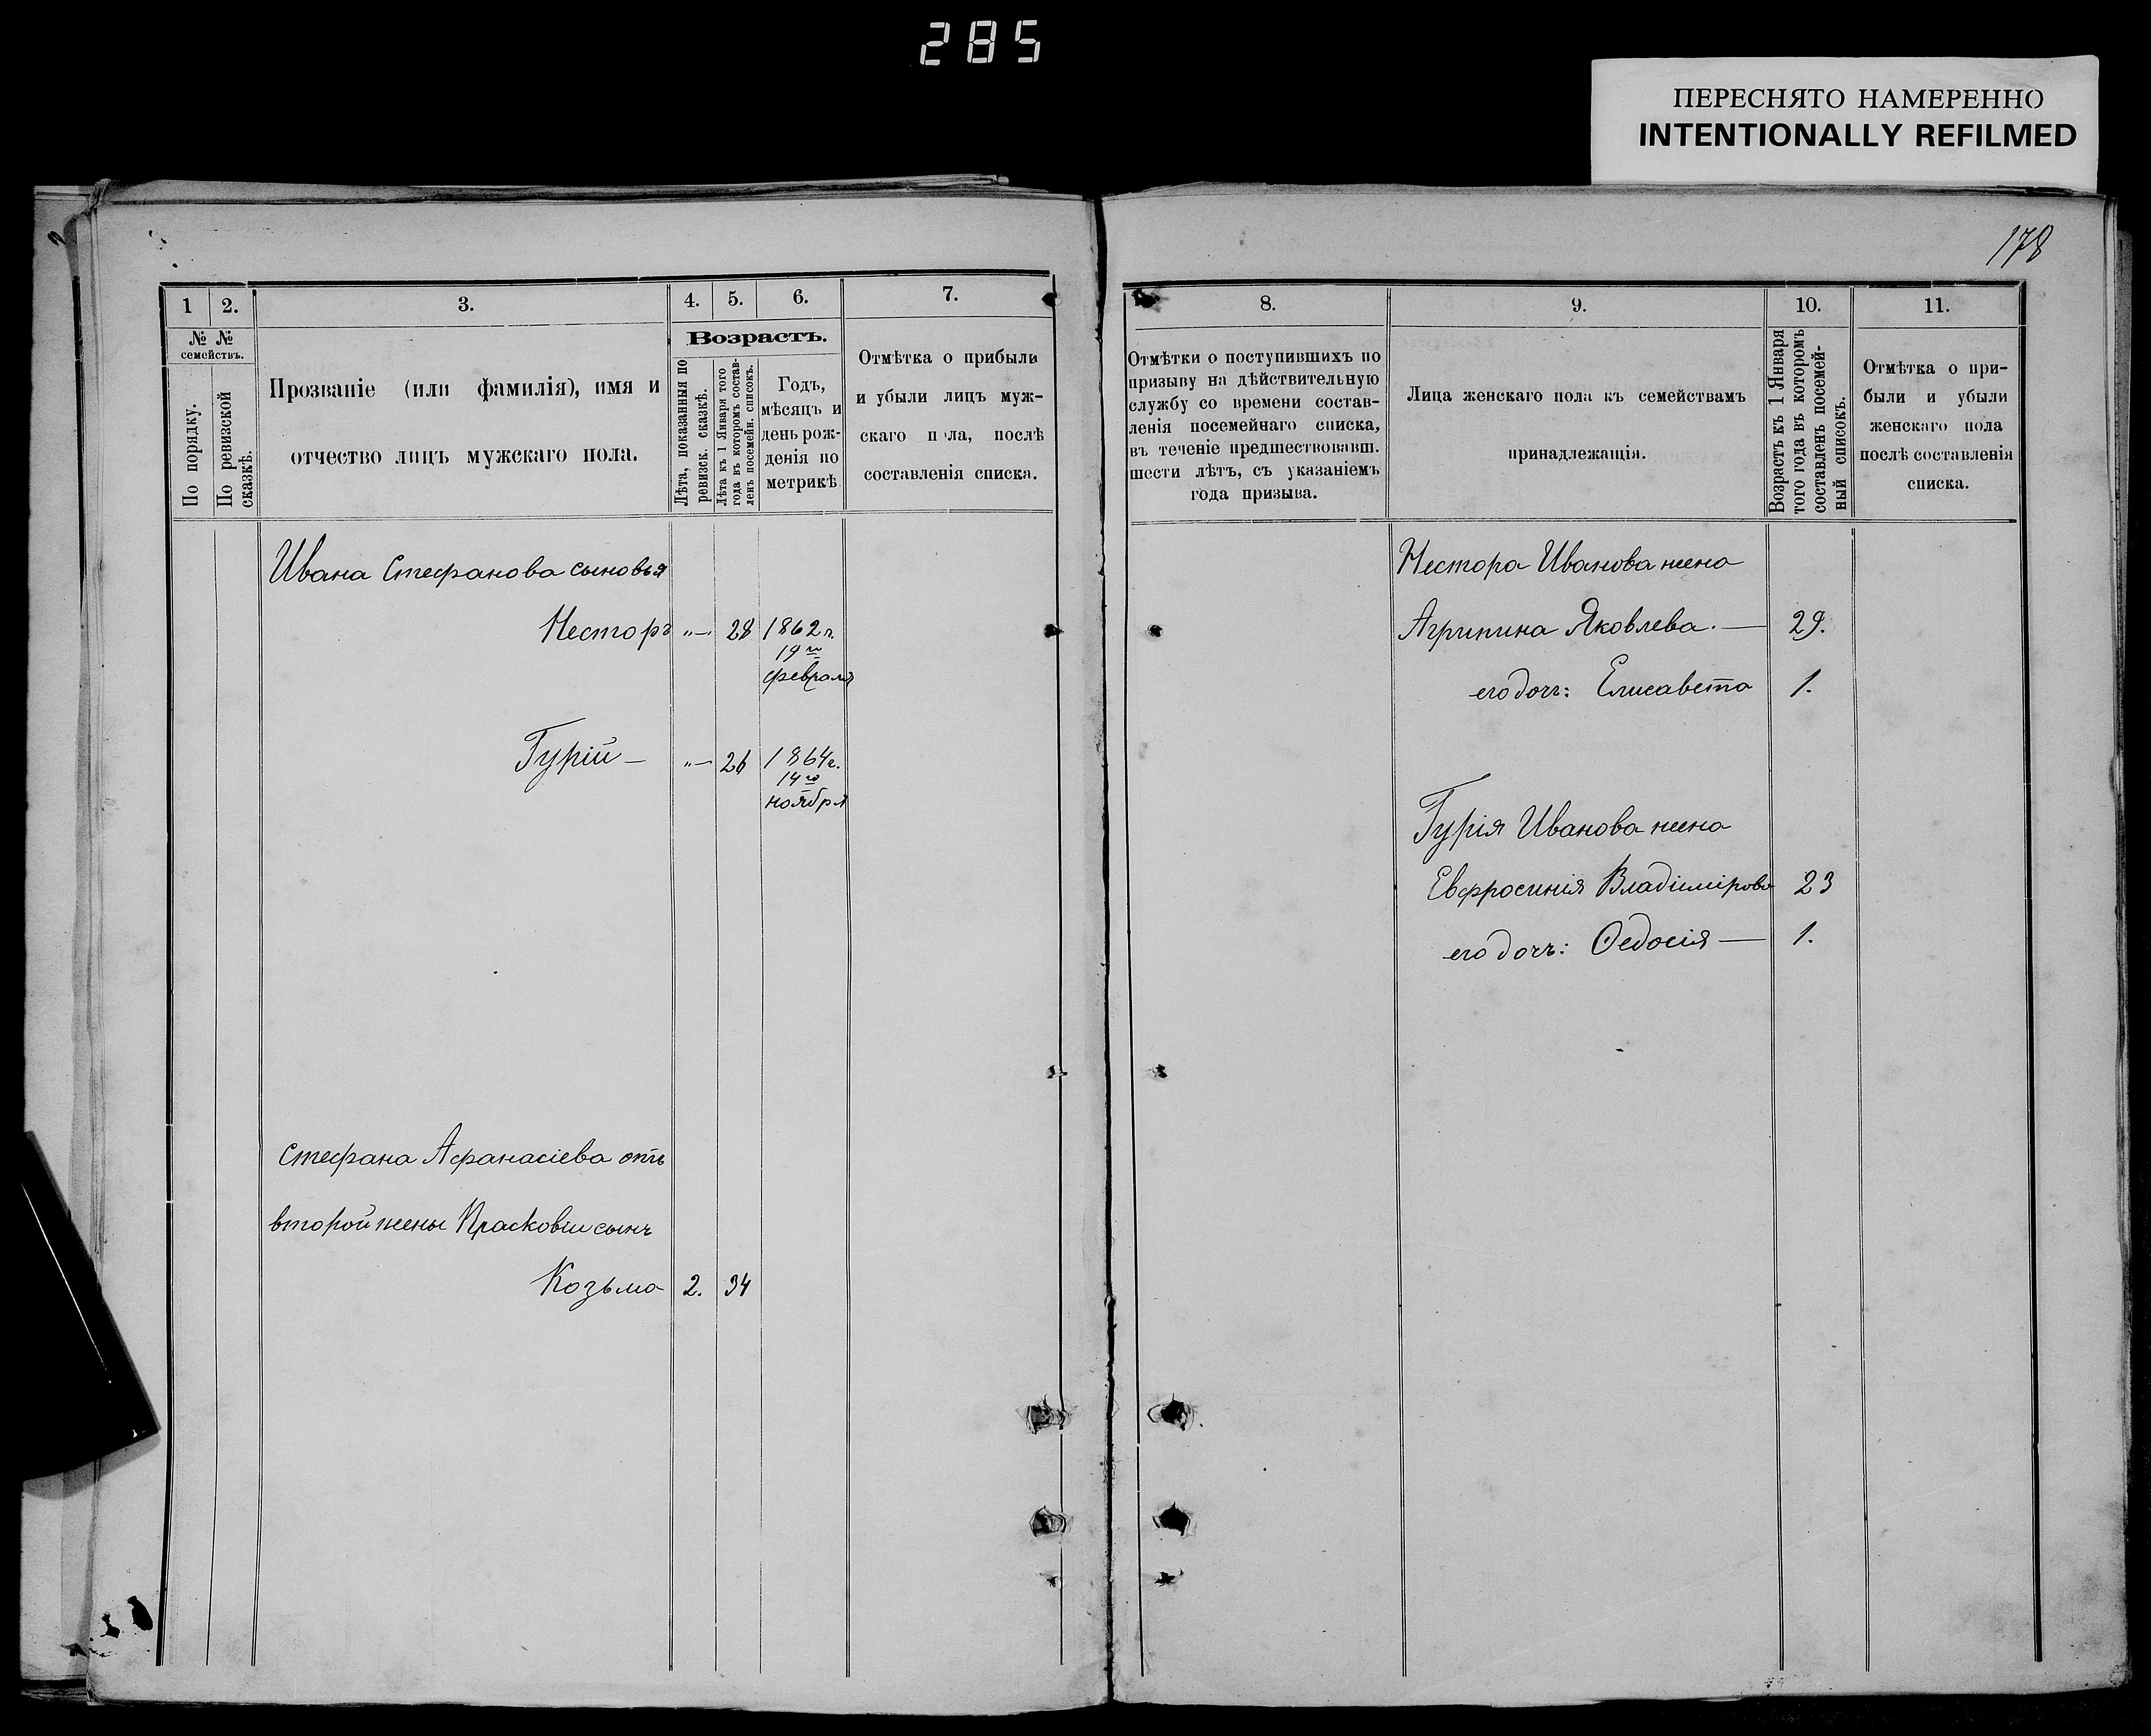 285
ПЕРЕСНЯТО НАМЕРЕННО
INTENTIONALLY REFILMED
178
1
2.
3.
4.
5.
6.
7.
№ №
семействъ.
По порядку.
По ревизской
сказкѣ.
Прозваніе (или фамилія), имя и
отчество лицъ мужскаго пола.
Возрастъ.
Лѣта, показанныя по
ревизск. сказкѣ.
Лѣта къ 1 Января того
года въ которомъ состав-
ленъ посемейн. списокъ.
Годъ,
мѣсяцъ и
день рож-
денія по
метрикѣ
Отмѣтка о прибыли
и убыли лицъ муж-
скаго пола, послѣ
составленія списка.
Ивана Стефанова сыновья
Несторъ „— 28 1862 г.
19го
февраля
Гурій — „— 26 1864 г.
14го
ноября
Стефана Афанасіева отъ
второй жены Прасковіи сынъ
Козьма 2. 34
8.
9.
10.
11.
Отмѣтки о поступившихъ по
призыву на дѣйствительную
службу со времени состав-
ленія посемейнаго списка,
въ теченіе предшествовавш.
шести лѣтъ, съ указаніемъ
года призыва.
Лица женскаго пола къ семействамъ
принадлежащія.
Возрастъ къ 1 Января
того года въ которомъ
составленъ посемей-
ный списокъ.
Отмѣтка о при-
были и убыли
женскаго пола
послѣ составленія
списка.
Нестора Иванова жена
Агрипина Яковлева. — 29.
его дочь: Елисавета 1.
Гурія Иванова жена
Евфросинія Владимірова 23
его дочь: Ѳедосія — 1.